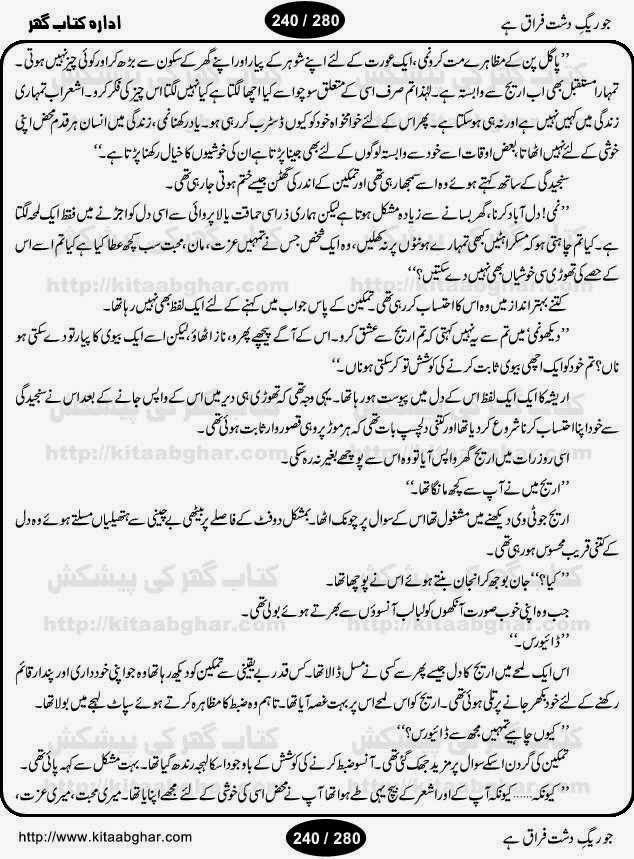 جو ریگِ دشت فراق ہے
240 / 280
ادارہ کتاب گھر
’’پاگل پن کے مظاہرے مت کرو نمی، ایک عورت کے لئے اپنے شوہر کے پیار اور اپنے گھر کے سکون سے بڑھ کر اور کوئی چیز نہیں ہوتی۔
تمہارا مستقبل بھی اب اریج سے وابستہ ہے۔ لہٰذا تم صرف اسی کے متعلق سوچو اسے کیا اچھا لگتا ہے کیا نہیں لگتا اس چیز کی فکر کرو۔ اشعر اب تمہاری
زندگی میں کہیں نہیں ہے اور نہ ہی ہو سکتا ہے۔ پھر اس کے لئے خوامخواہ خود کو کیوں ڈسٹرب کر رہی ہو۔ یاد رکھنا نمی، زندگی میں انسان ہر قدم محض اپنی
خوشی کے لئے نہیں اٹھاتا، بعض اوقات اسے خود سے وابستہ لوگوں کے لئے بھی جینا پڑتا ہے ان کی خوشیوں کا خیال رکھنا پڑتا ہے۔‘‘
سنجیدگی کے ساتھ کہتے ہوئے وہ اسے سمجھا رہی تھی اور تمکین کے اندر کی گھٹن جیسے ختم ہوتی جا رہی تھی۔
’’نمی! دل آباد کرنا، گھر بسانے سے زیادہ مشکل ہوتا ہے لیکن ہماری ذرا سی حماقت یا لاپروائی سے اسی دل کو اجڑنے میں فقط ایک لمحہ لگتا
ہے۔ کیا تم چاہتی ہو کہ مسکراہٹیں کبھی تمہارے ہونٹوں پر نہ کھلیں، وہ ایک شخص جس نے تمہیں عزت، مان، محبت سب کچھ عطا کیا ہے کیا تم اسے اس
کے حصے کی تھوڑی سی خوشیاں بھی نہیں دے سکتیں؟‘‘
کتنے بہتر انداز میں وہ اس کا احتساب کر رہی تھی۔ تمکین کے پاس جواب میں کہنے کے لئے ایک لفظ بھی نہیں رہا تھا۔
’’دیکھو نمی‘ میں تم سے یہ نہیں کہتی کہ تم اریج سے عشق کرو۔ اس کے آگے پیچھے پھرو، ناز اٹھاؤ، لیکن اسے ایک بیوی کا پیار تو دے سکتی ہو
ناں؟ تم خود کو ایک اچھی بیوی ثابت کرنے کی کوشش تو کر سکتی ہو ناں۔‘‘
اریشہ کا ایک ایک لفظ اس کے دل میں پیوست ہو رہا تھا۔ یہی وجہ تھی کہ تھوڑی ہی دیر میں اس کے واپس جانے کے بعد اس نے سنجیدگی
سے خود اپنا احتساب کرنا شروع کر دیا تھا اور کتنی دلچسپ بات تھی کہ ہر موڑ پر وہی قصور وار ثابت ہوئی تھی۔
اسی روز رات میں اریج گھر واپس آیا تو وہ اس سے پوچھے بغیر نہ رہ سکی۔
’’اریج میں نے آپ سے کچھ مانگا تھا۔‘‘
اریج جو ٹی وی دیکھنے میں مشغول تھا اس کے سوال پر چونک اٹھا۔ بمشکل دو فٹ کے فاصلے پر بیٹھی بے چینی سے ہتھیلیاں مسلتے ہوئے وہ دل
کے کتنی قریب محسوس ہو رہی تھی۔
’’کیا؟‘‘ جان بوجھ کر انجان بنتے ہوئے اس نے پوچھا تھا۔
جب وہ اپنی خوب صورت آنکھوں کو لبالب آنسوؤں سے بھرتے ہوئے بولی تھی۔
’’ڈائیورس۔‘‘
اس ایک لمحے میں اریج کا دل جیسے پھر سے کسی نے مسل ڈالا تھا۔ کس قدر بے یقینی سے تمکین کو دیکھ رہا تھا وہ جو اپنی خود داری اور پندار قائم
رکھنے کے لئے خود بکھر جانے پر تلی ہوئی تھی۔ اریج کو اس لمحے اس پر بہت غصہ آیا تھا۔ تاہم وہ ضبط کا مظاہرہ کرتے ہوئے سپاٹ لہجے میں بولا تھا۔
’’کیوں چاہیے تمہیں مجھ سے ڈائیورس؟‘‘
تمکین کی گردن اسکے سوال پر مزید جھک گئی تھی۔ آنسو ضبط کرنے کی کوشش کے باوجود اسکا لہجہ رندھ گیا تھا۔ بہت مشکل سے کہہ پائی تھی۔
’’کیونکہ...... کیونکہ آپ کے اور اشعر کے بیچ یہی طے ہوا تھا آپ نے محض اسی کی خوشی کے لئے مجھے اپنایا تھا۔ میری محبت، میری عزت،
کتاب گھر کی پیشکش
http://kitaabghar.com
http://www.kitaabghar.com
240 / 280
جو ریگِ دشت فراق ہے